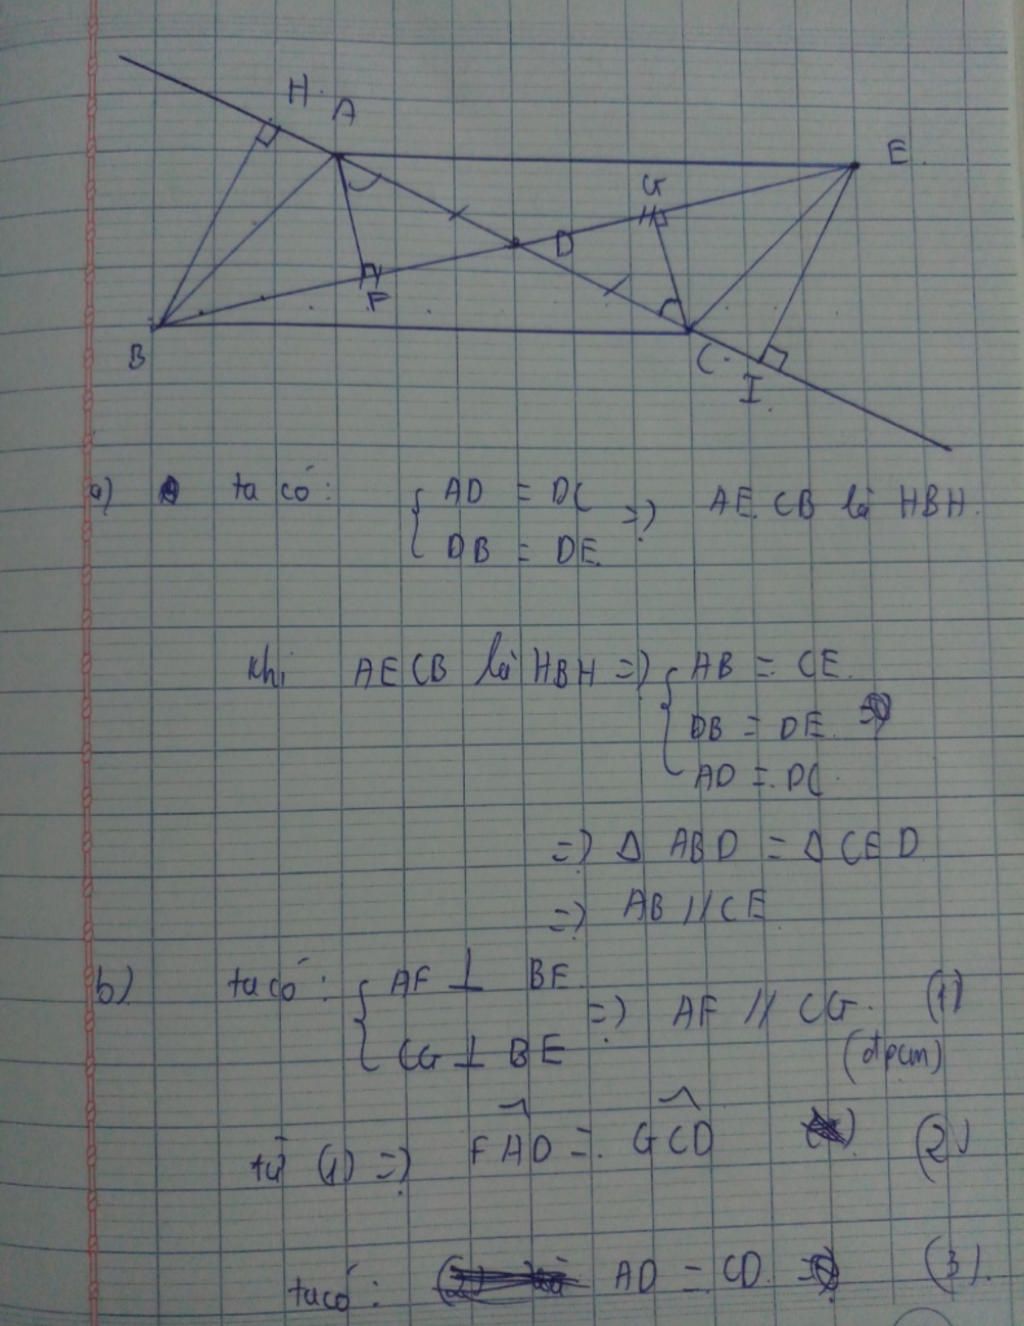 H A
E
G
D
F
B
C
I
a) ta có: { AD = DC
DB = DE => AECB là HBH.
khi AECB là HBH => { AB = CE.
DB = DE.
AD = DC
=> Δ ABD = Δ CED
=> AB // CE
b) ta có: { AF ⊥ BE
CG ⊥ BE => AF // CG. (1)
(đpcm)
từ (1) => FAD = GCD (2)
ta có: AD = CD. (3).